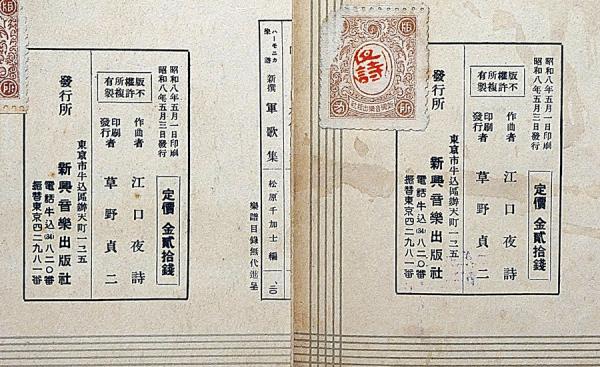 ハーモニカ樂譜
新撰 軍歌集
松原千加士 編
樂譜目録無代進呈
昭和八年五月一日印刷
昭和八年五月三日發行
版權所有
不許複製
定價 金貳拾錢
作曲者 江口夜詩
印刷發行者 草野貞二
發行所
東京市牛込區辨天町一二五
新興音樂出版社
電話牛込(34)八二〇番
振替東京四二九八一番
昭和八年五月一日印刷
昭和八年五月三日發行
版權所有
不許複製
定價 金貳拾錢
作曲者 江口夜詩
印刷發行者 草野貞二
發行所
東京市牛込區辨天町一二五
新興音樂出版社
電話牛込(34)八二〇番
振替東京四二九八一番